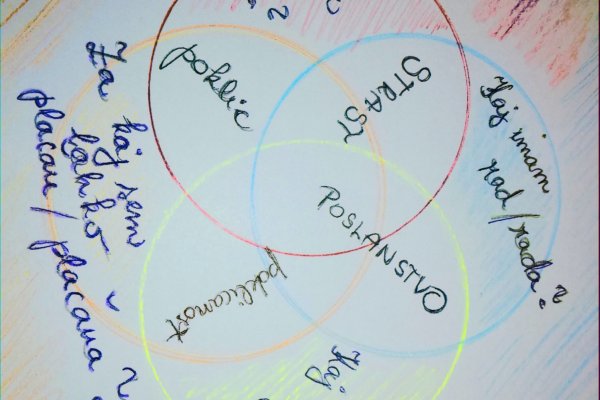 poklic
STRAST
Kaj imam
rad/rada?
Za kaj sem
lahko
plačan/plačana?
POSLANSTVO
poklicanost
Kaj